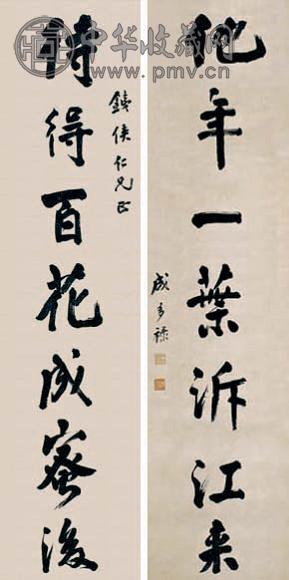 中华收藏网
www.pmv.cn
待得百花成蜜後
鐵俠仁兄正
他年一葉泝江来
成多祿